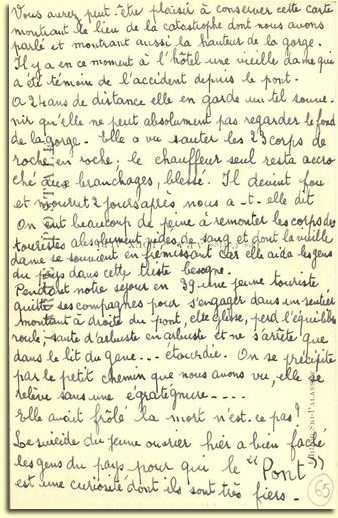 Vous aurez peut-être plaisir à conserver cette carte
montrant le lieu de la catastrophe dont nous avons
parlé et montrant aussi la hauteur de la gorge.
Il y a en ce moment à l'hôtel une vieille dame qui
a été témoin de l'accident depuis le pont.
A 24 ans de distance elle en garde un tel souve-
nir qu'elle ne peut absolument pas regarder le fond
de la gorge. Elle a vu sauter les 23 corps de
roche en roche; le chauffeur seul resta accro
ché aux branchages, blessé. Il devint fou
et mourut 2 jours après nous a-t-elle dit
On eut beaucoup de peine à remonter les corps des
touristes absolument vides de sang et dont la vieille
dame se souvient en frémissant car elle aida les gens
du pays dans cette triste besogne.
Pendant notre séjour en 39 une jeune touriste
quitte ses compagnes pour s'engager dans un sentier
montant à droite du pont, elle glisse, perd l'équilibre
roule, saute d'arbuste en arbuste et ne s'arrête que
dans le lit du gave.... étourdie. On se précipite
par le petit chemin que nous avons vu, elle se
relève sans une égratignure....
Elle avait frôlé la mort n'est-ce pas?
Le suicide du jeune ouvrier hier a bien faché
les gens du pays pour qui le "Pont"
est une curiosité dont ils sont très fiers.
65